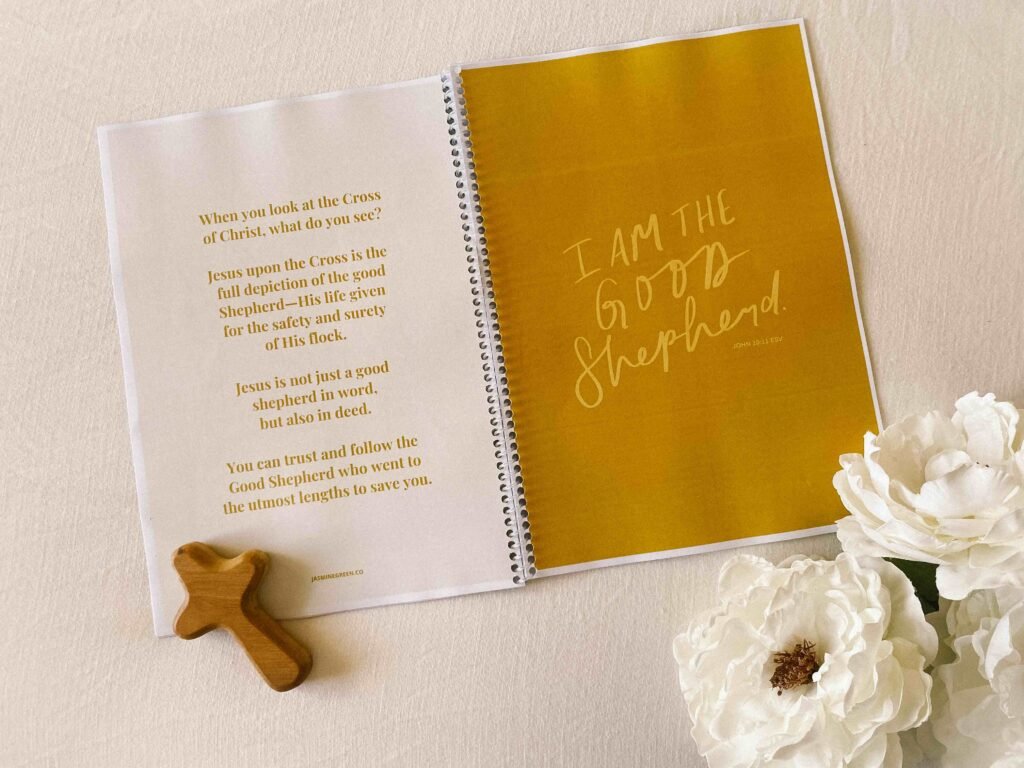 When you look at the Cross
of Christ, what do you see?
Jesus upon the Cross is the
full depiction of the good
Shepherd—His life given
for the safety and surety
of His flock.
Jesus is not just a good
shepherd in word,
but also in deed.
You can trust and follow the
Good Shepherd who went to
the utmost lengths to save you.
JASMINEGREEN.CO
I AM THE
GOOD
Shepherd.
JOHN 10:11 ESV